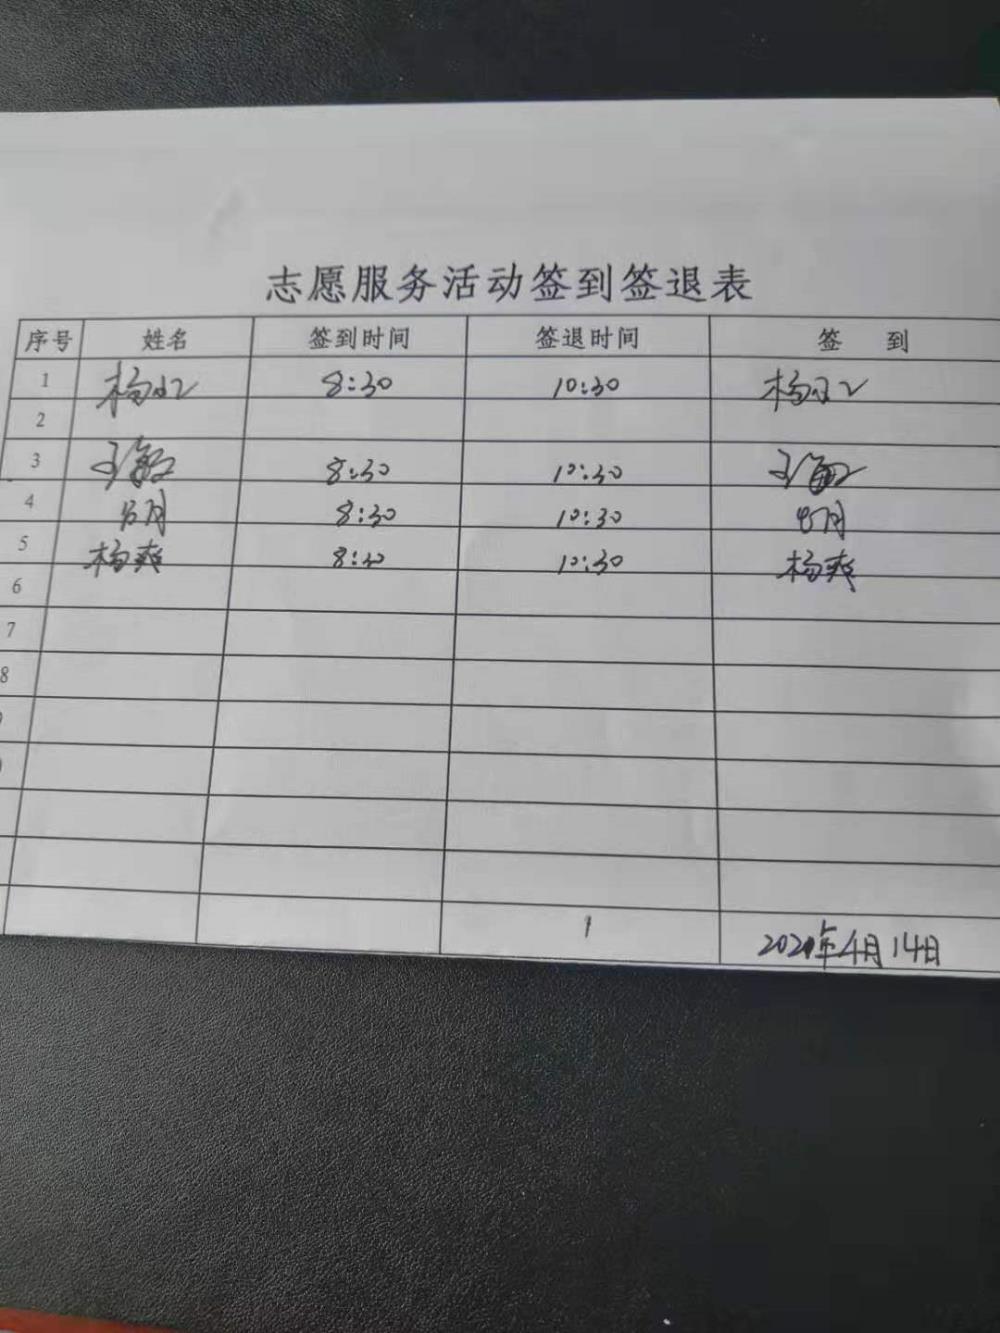 志愿服务活动签到签退表
序号 姓名 签到时间 签退时间 签 到
1 杨 8:30 10:30 杨
2
3 王 8:30 10:30 王
4 月 8:30 10:30 月
5 杨爽 8:30 10:30 杨爽
6
7
8
1
2021年4月14日